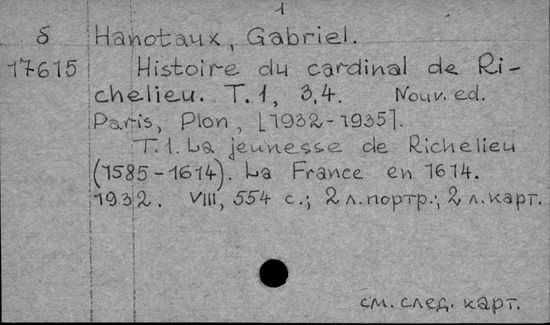 1
б Hanotaux, Gabriel.
17615 Histoire du cardinal de Ri-
chelieu. T.1, 3,4. Nouv. ed.
Paris, Plon, [1932-1935].
T.1. La jeunesse de Richelieu
(1585-1614). La France en 1614.
1932. VIII, 554 с.; 2 л. портр.; 2 л. карт.
см. след. карт.